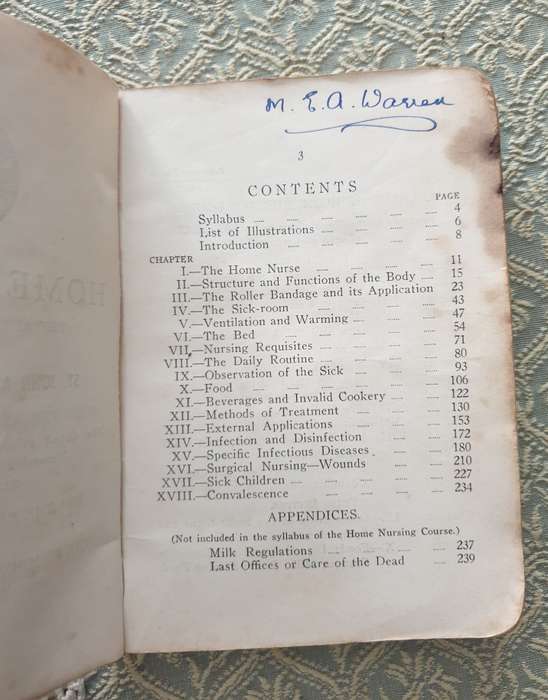 M. E. A. Warren
3
CONTENTS
PAGE
Syllabus .... .... .... .... .... 4
List of Illustrations .... .... .... .... 6
Introduction .... .... .... .... .... 8
CHAPTER
I.—The Home Nurse .... .... .... .... 11
II.—Structure and Functions of the Body .... 15
III.—The Roller Bandage and its Application 23
IV.—The Sick-room .... .... .... .... 43
V.—Ventilation and Warming .... .... .... 47
VI.—The Bed .... .... .... .... .... 54
VII.—Nursing Requisites .... .... .... 71
VIII.—The Daily Routine .... .... .... .... 80
IX.—Observation of the Sick .... .... .... 93
X.—Food .... .... .... .... .... 106
XI.—Beverages and Invalid Cookery .... .... 122
XII.—Methods of Treatment .... .... .... 130
XIII.—External Applications .... .... .... 153
XIV.—Infection and Disinfection .... .... 172
XV.—Specific Infectious Diseases .... .... 180
XVI.—Surgical Nursing—Wounds .... .... 210
XVII.—Sick Children .... .... .... .... 227
XVIII.—Convalescence .... .... .... .... 234
APPENDICES.
(Not included in the syllabus of the Home Nursing Course.)
Milk Regulations .... .... .... .... 237
Last Offices or Care of the Dead .... 239